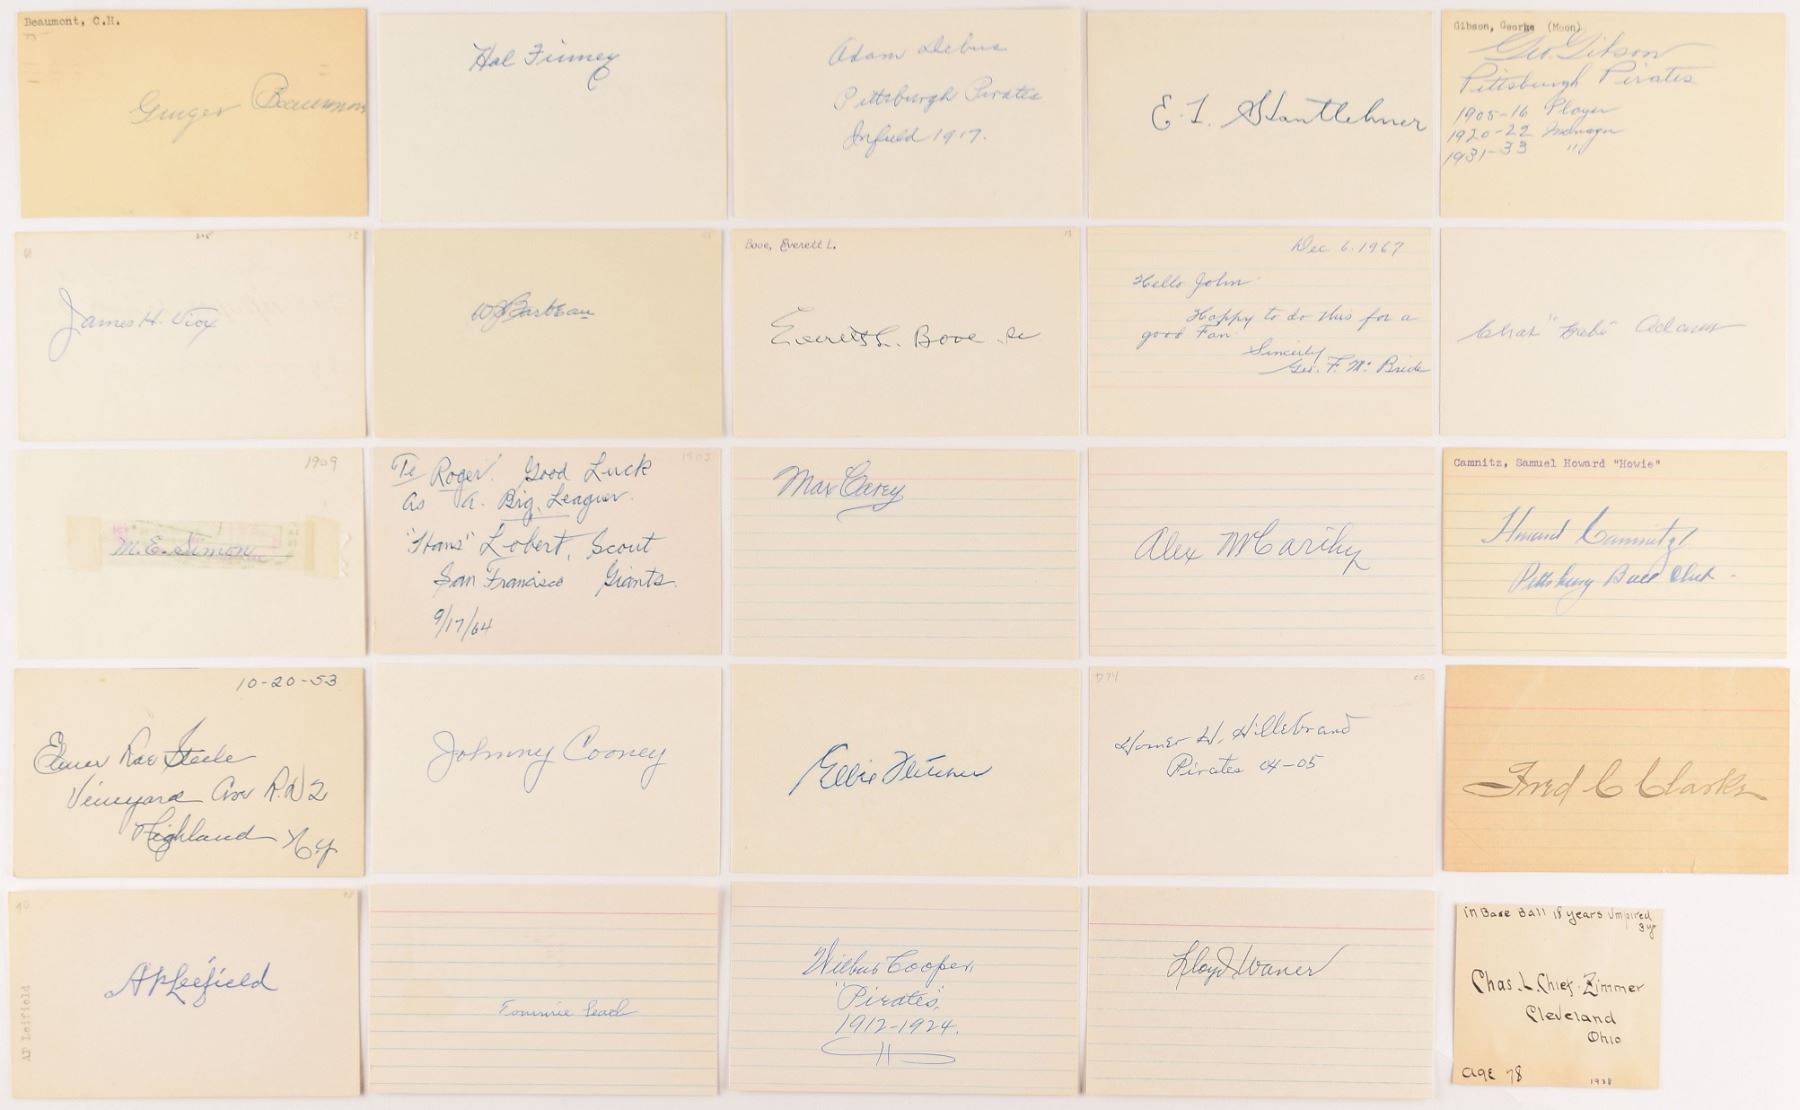 Beaumont, C.H.
Ginger Beaumont
Hal Finney
Adam Debus
Pittsburgh Pirates
Infield 1917.
E. I. Shantlebner
Gibson, George (Moon)
Geo. Gibson
Pittsburgh Pirates
1905-16 Player
1920-22 Manager
1931-33 "
James H. Viox
WJ Barbeau
Booe, Everett L.
Everett L. Booe
Dec 6. 1967
Hello John
Happy to do this for a
good Fan.
Sincerely
Geo. F. McBride
Chas "Babe" Adams
1909
M. E. Simon
1903
To Roger! Good Luck
as a Big Leaguer.
"Hans" Lobert, Scout
San Francisco Giants.
9/17/64
Max Carey
Alex McCarthy
Camnitz, Samuel Howard "Howie"
Howard Camnitz
Pittsburg Ball Club
10-20-53
Elmer Rae Steele
Vineyard Ave R.D 2
Highland NY
Johnny Cooney
Elbie Fletcher
D74
05
Homer W. Hillebrand
Pirates 04-05
Fred C Clarke
AP Leifield
AP Leifield
Tommie Leach
Wilbur Cooper,
"Pirates",
1912-1924.
Lloyd Waner
in Base Ball 18 years Umpired
3 yr
Chas. L. Chief. Zimmer
Cleveland
Ohio
age 78
1938